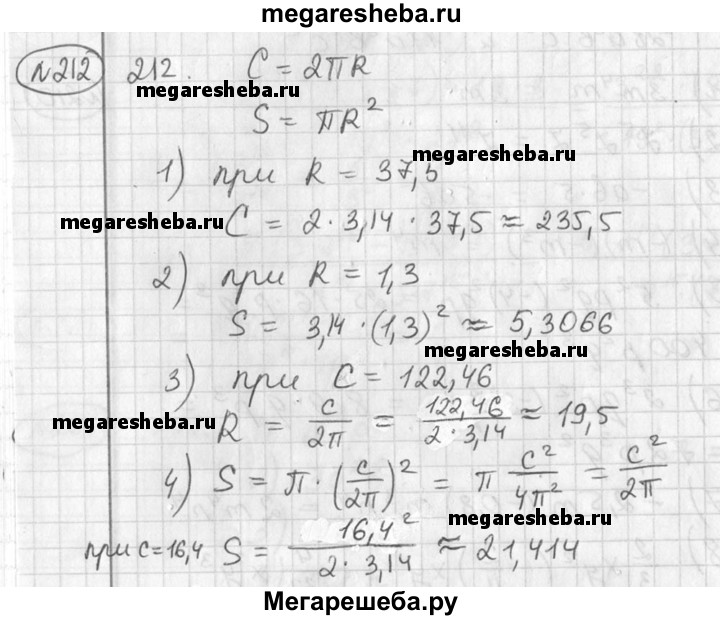 megaresheba.ru
№212 212. C = 2πR
megaresheba.ru
S = πR²
megaresheba.ru
1) при R = 37,5
megaresheba.ru
C = 2·3,14·37,5 ≈ 235,5
2) при R = 1,3
S = 3,14·(1,3)² ≈ 5,3066
megaresheba.ru
3) при C = 122,46
megaresheba.ru
R = c/2π = 122,46/2·3,14 ≈ 19,5
4) S = π·(c/2π)² = π c²/4π² = c²/2π
megaresheba.ru
при c=16,4 S = 16,4²/2·3,14 ≈ 21,414
Мегарешеба.ру